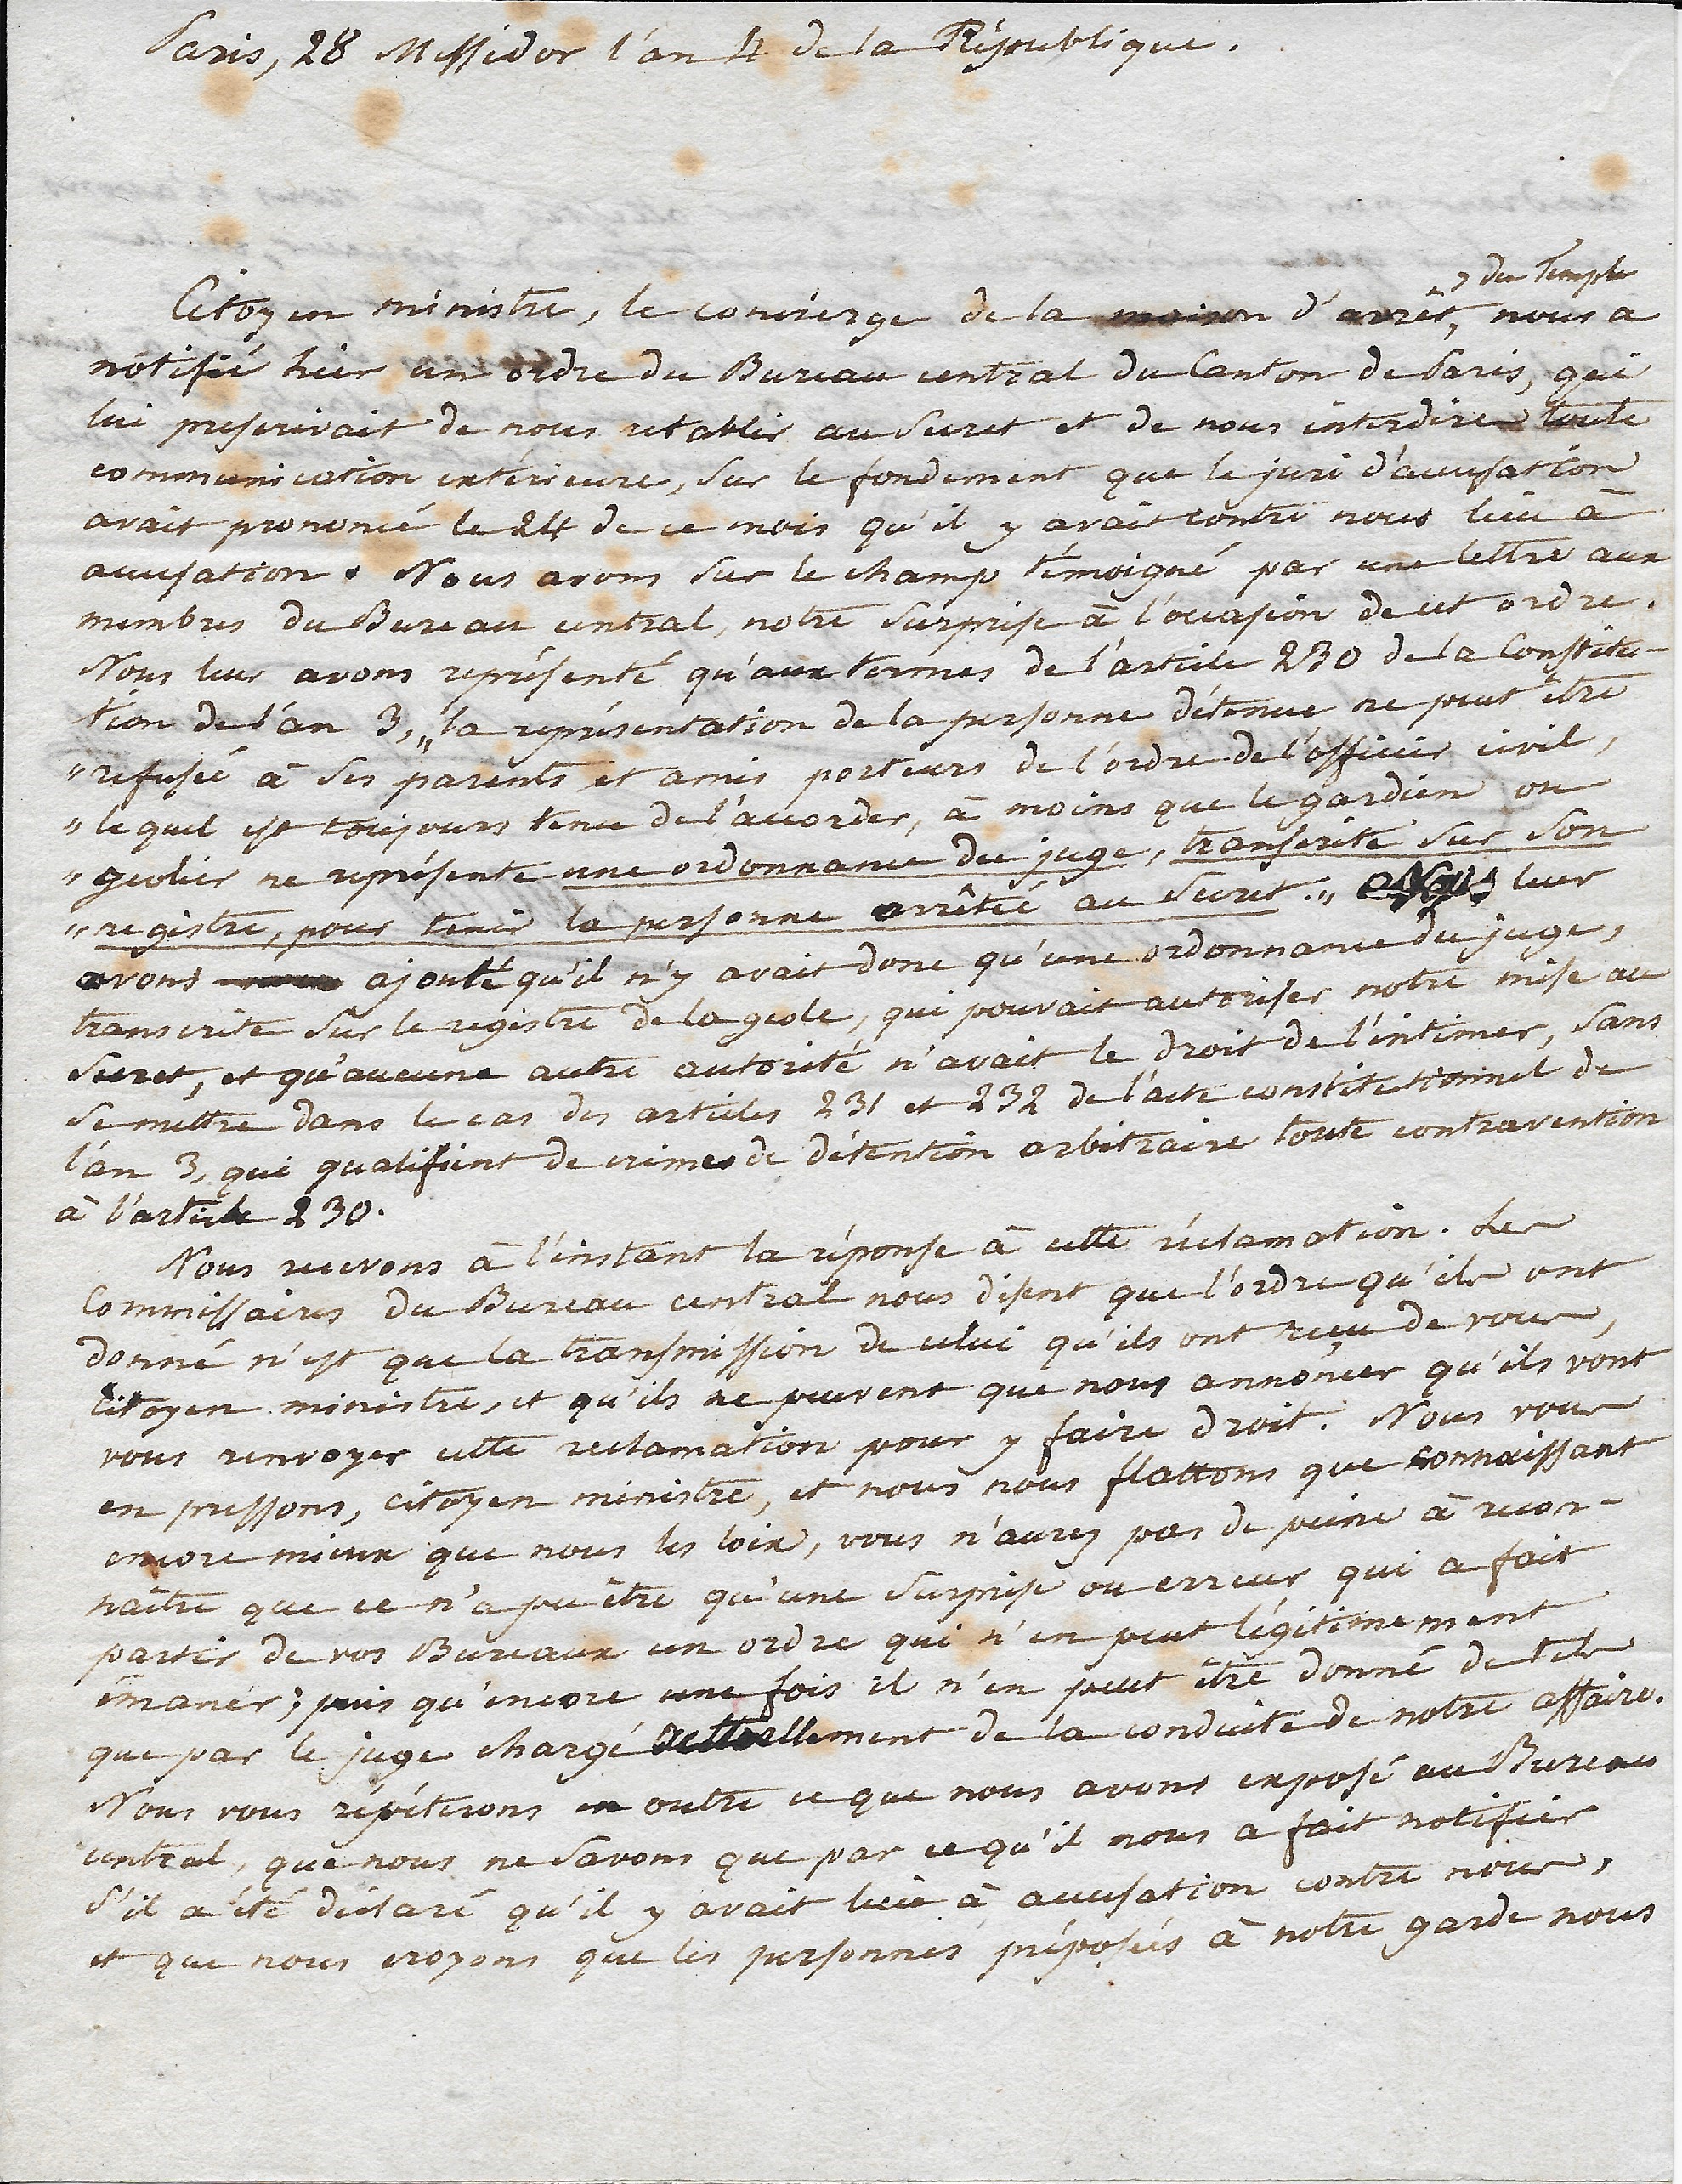 Paris, 28 Messidor l'an 4 de la République.
du Temple
Citoyen ministre, le concierge de la maison d'arrêt, nous a
notifié hier un ordre du Bureau central du Canton de Paris, qui
lui prescrivait de nous retablir au Secret et de nous interdire toute
communication extérieure, Sur le fondement que le juri d'accusation
avait prononcé le 24 de ce mois qu'il y avait contre nous lieu à
accusation. Nous avons Sur le champ témoigné par une lettre aux
membres du Bureau central, notre Surprise à l'occasion de cet ordre.
Nous leur avons représenté qu'aux termes de l'article 230 de la Constitu-
tion de l'an 3, "la représentation de la personne détenue ne peut être
"refusée à Ses parents et amis porteurs de l'ordre de l'officier civil,
"lequel est toujours tenu de l'accorder, à moins que le gardien ou
"geolier ne représente une ordonnance du juge, transcrite Sur Son
"registre, pour tenir la personne arrêtée au Secret." Nous leur
avons ajouté qu'il n'y avait donc qu'une ordonnance du juge,
transcrite Sur le registre de la geole, qui pouvait autoriser notre mise au
Secret, et qu'aucune autre autorité n'avait le droit de l'intimer, Sans
Se mettre dans le cas des articles 231 et 232 de l'acte constitutionnel de
l'an 3, qui qualifient de crimes de détention arbitraire toute contravention
à l'article 230.
Nous recevons à l'instant la réponse à cette réclamation. Les
Commissaires du Bureau central nous disent que l'ordre qu'ils ont
donné n'est que la transmission de celui qu'ils ont reçu de vous,
Citoyen ministre, et qu'ils ne peuvent que nous annoncer qu'ils vont
vous renvoyer cette reclamation pour y faire droit. Nous vous
en pressons, citoyen ministre, et nous nous flattons que connaissant
encore mieux que nous les loix, vous n'aurez pas de peine à recon-
naître que ce n'a pu être qu'une Surprise ou erreur qui a fait
partir de vos Bureaux un ordre qui n'en peut légitimement
émaner; puis qu'encore une fois il n'en peut être donné de tels
que par le juge chargé actuellement de la conduite de notre affaire.
Nous vous répéterons en outre ce que nous avons exposé au Bureau
central, que nous ne Savons que par ce qu'il nous a fait notifier
S'il a été déclaré qu'il y avait lieu à accusation contre nous,
et que nous croyons que les personnes préposées à notre garde nous